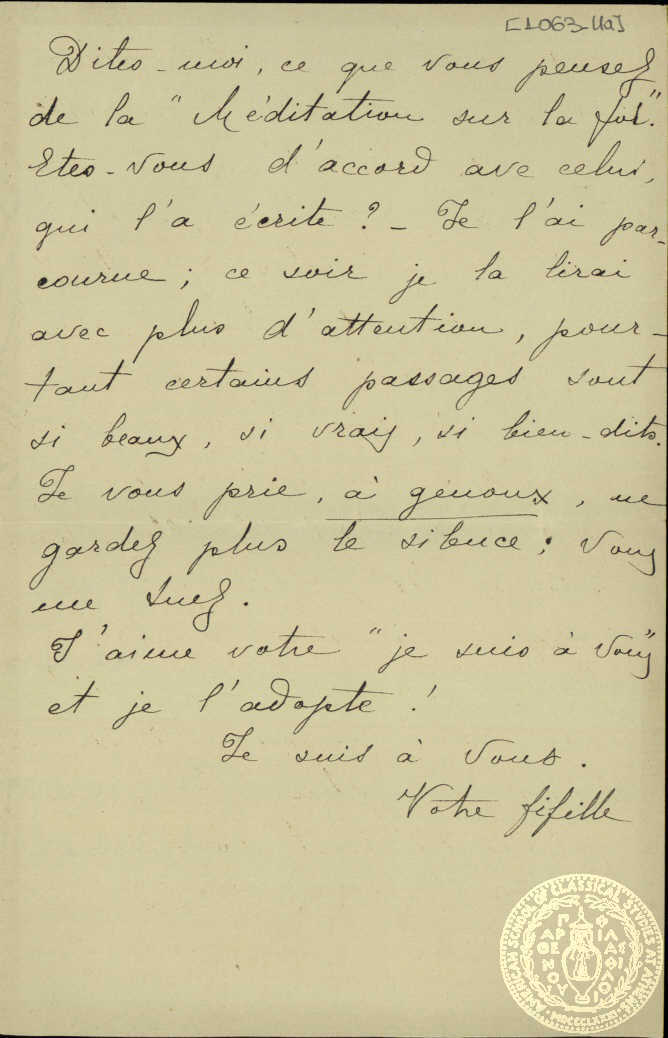 [1063-11a]
Dites-moi, ce que vous pensez
de la "Méditation sur la foi".
Etes-vous d'accord avec celui,
qui l'a écrite? - Je l'ai par-
courue; ce soir je la lirai
avec plus d'attention, pour-
tant certains passages sont
si beaux, si vrais, si bien-dits.
Je vous prie, à genoux, ne
gardez plus le silence; Vous
me tuez.
J'aime votre "je suis à Vous"
et je l'adopte!
Je suis à Vous.
Votre fifille
AMERICAN SCHOOL OF CLASSICAL STUDIES AT ATHENS
ΠΑΡΘΕΝΟΥ
ΦΙΛΑΣ ΦΙΛΟΙ
MDCCCLXXXI